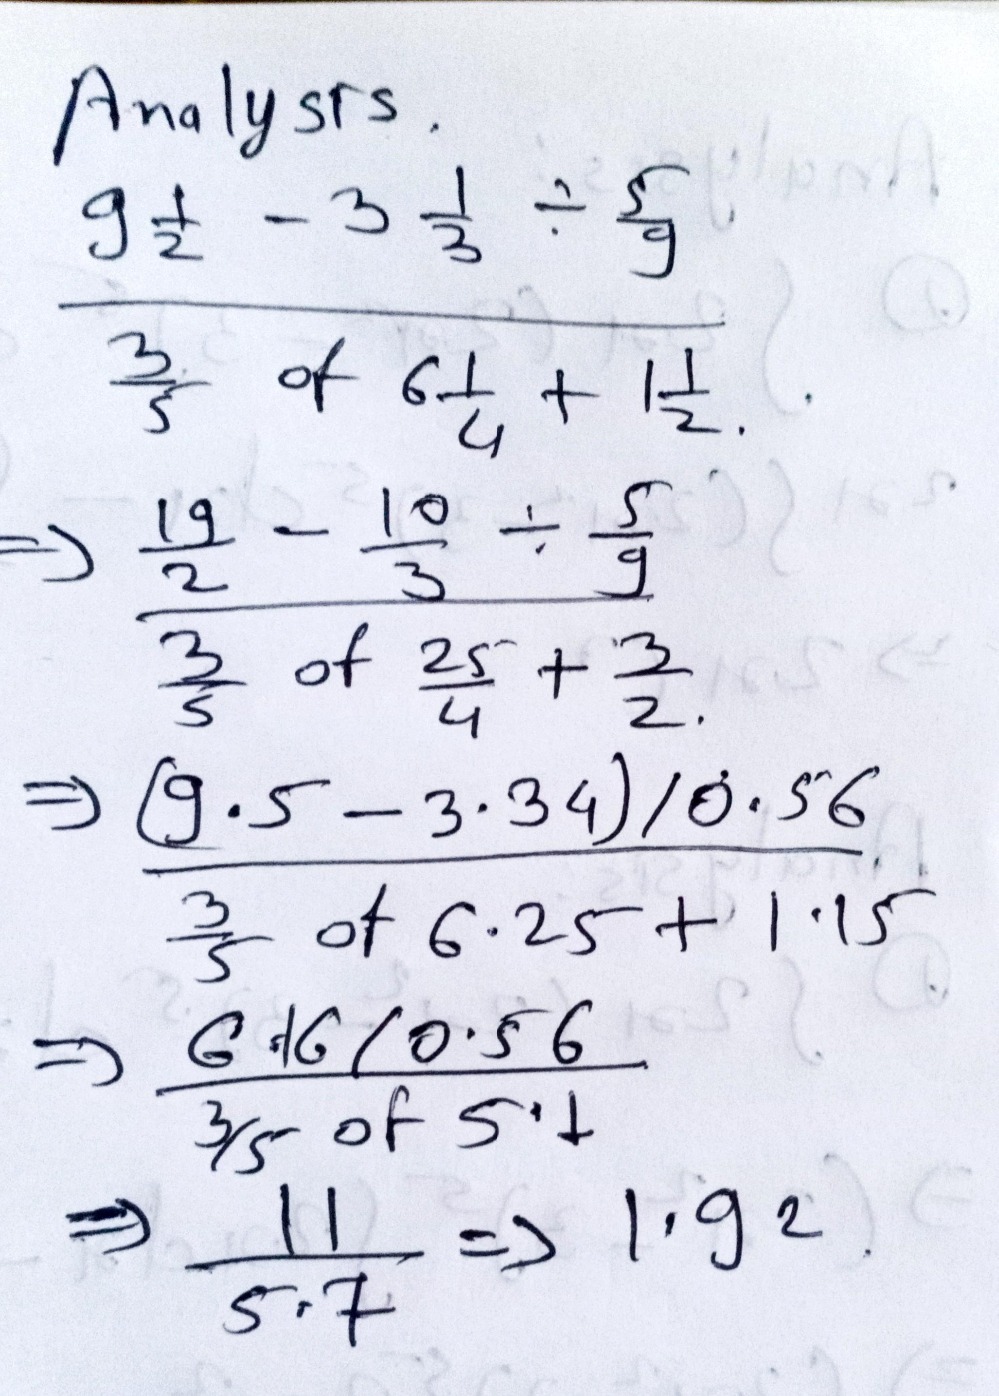 Analysis.
9 1/2 - 3 1/3 ÷ 5/9
3/5 of 6 1/4 + 1 1/2.
=> 19/2 - 10/3 ÷ 5/9
3/5 of 25/4 + 3/2.
=> (9.5 - 3.34)/0.56
3/5 of 6.25 + 1.15
=> 6.16/0.56
3/5 of 5.1
=> 11 => 1.92
5.7